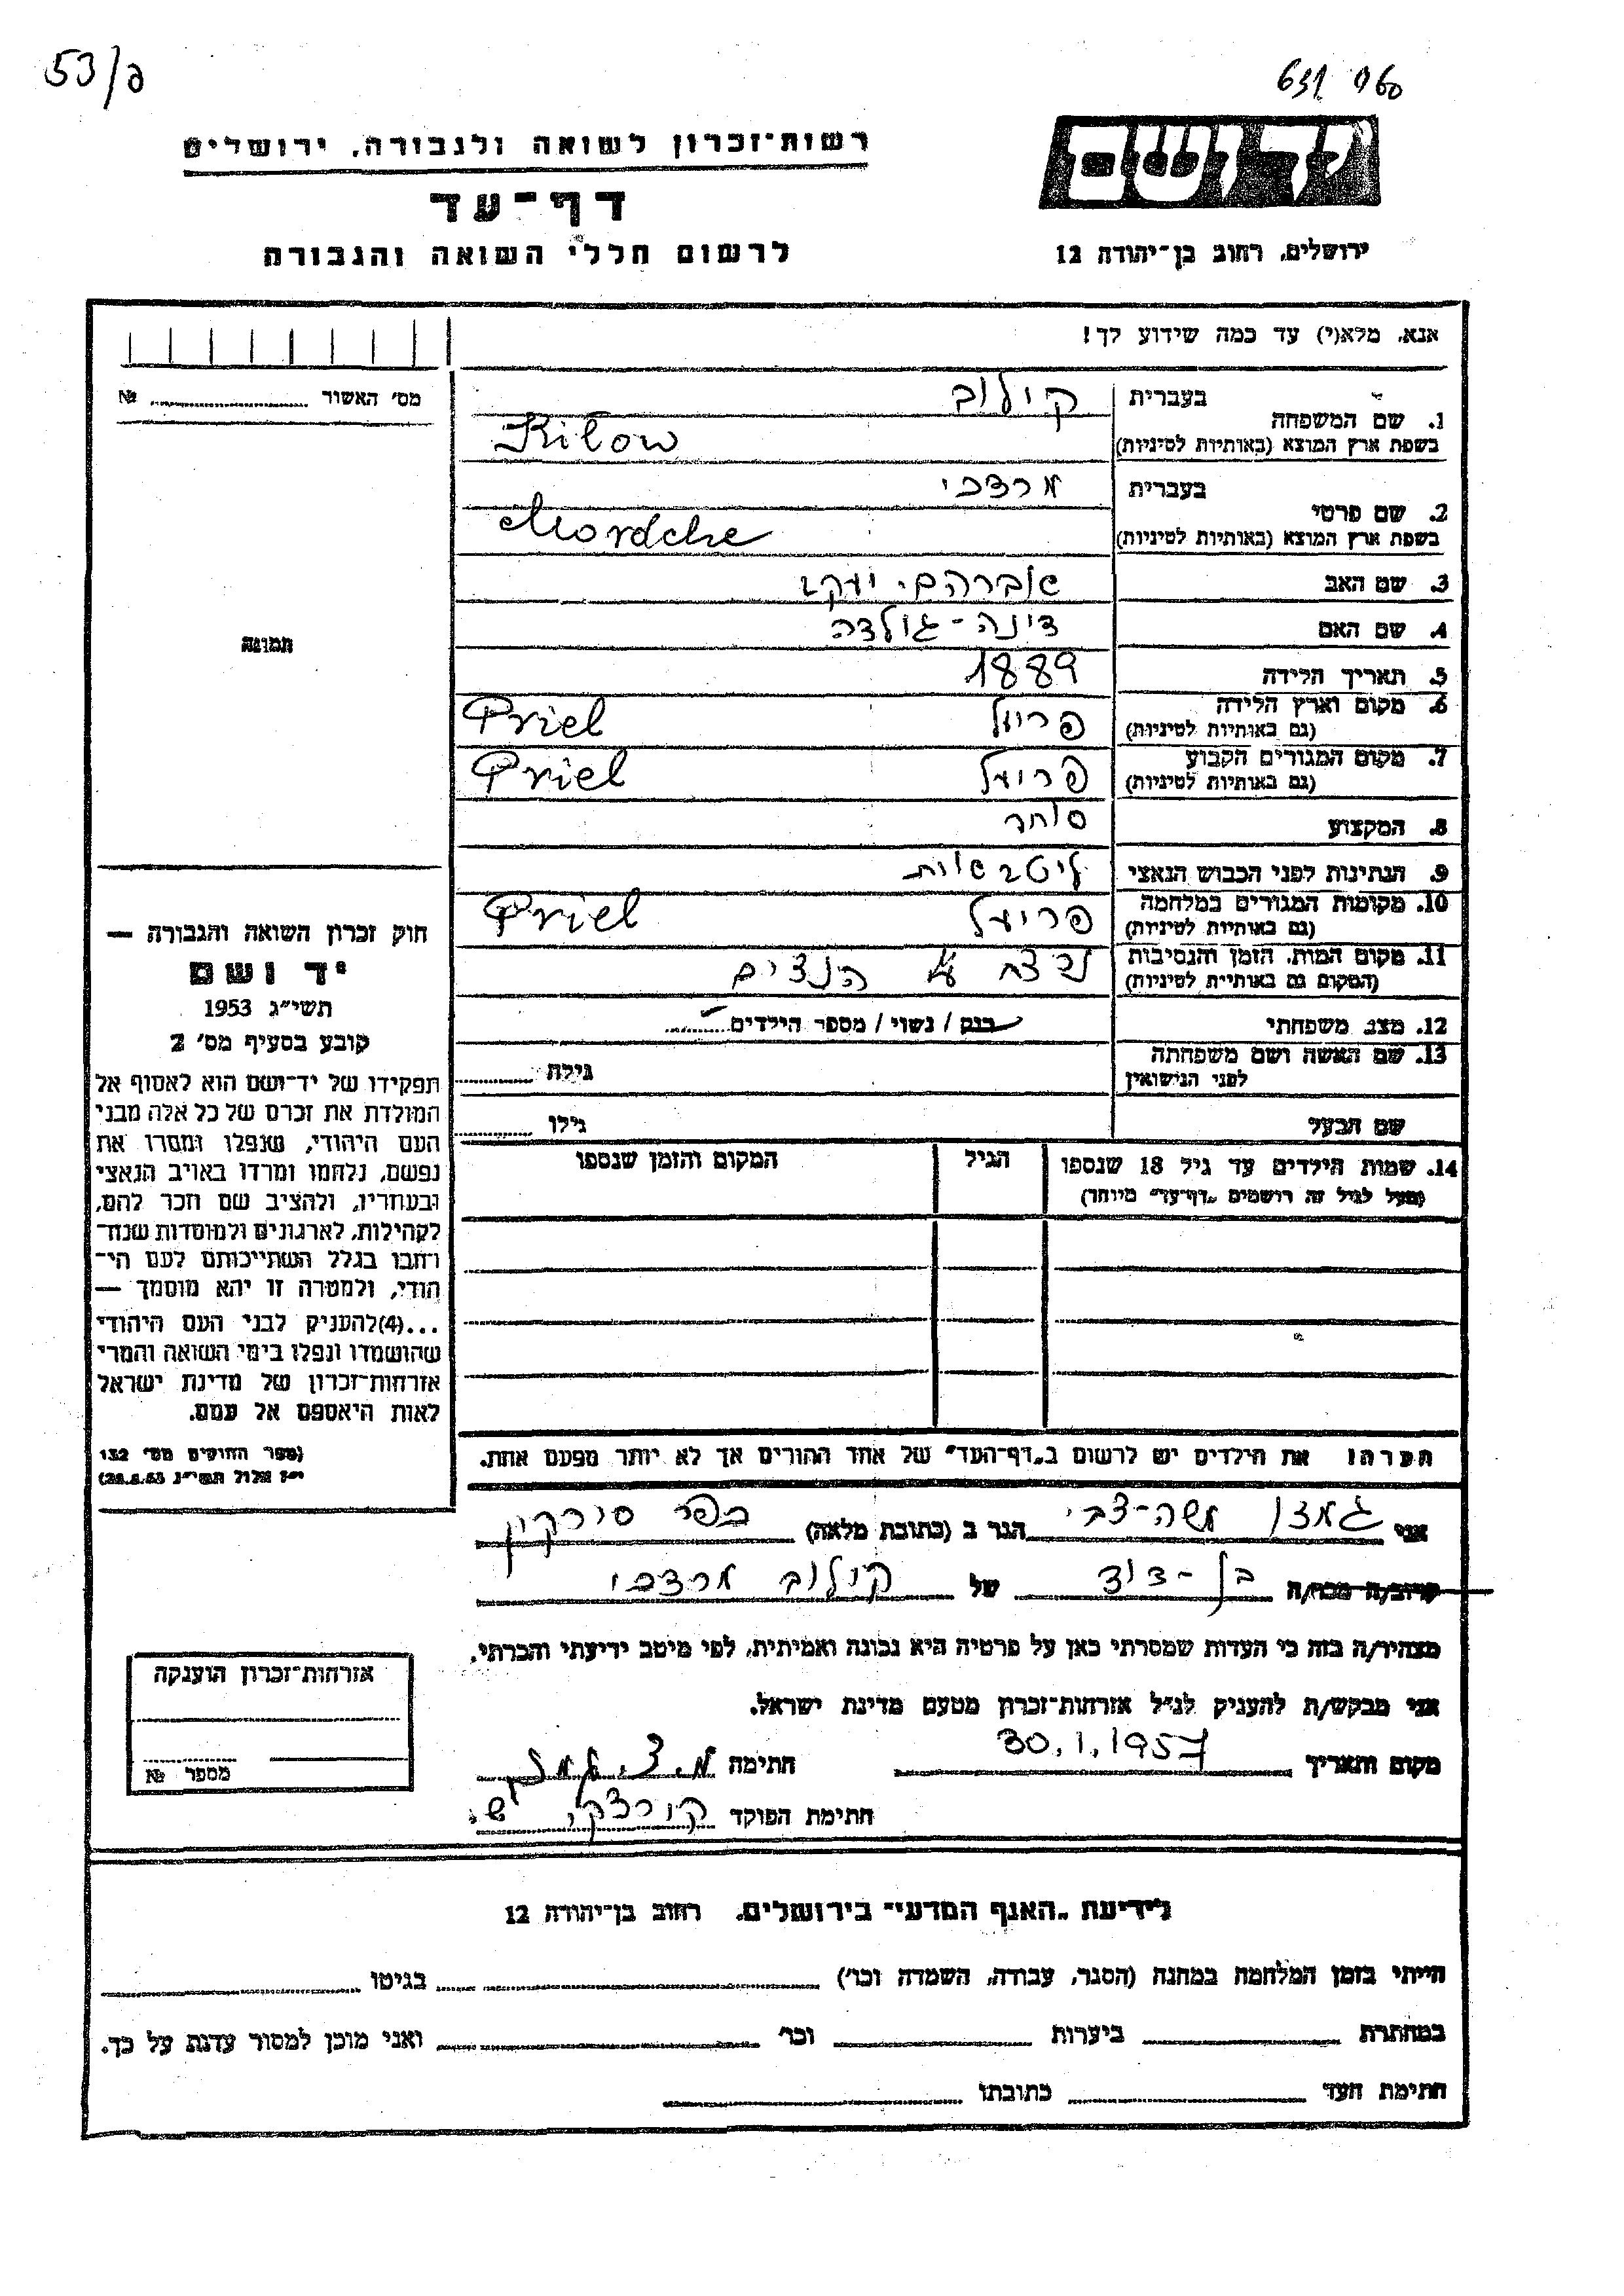 53/ם
631 060
יד ושם
ירושלים, רחוב בן־יהודה 12
רשות־זכרון לשואה ולגבורה, ירושלים
דף־עד
לרשום חללי השואה והגבורה
אנא, מלא(י) עד כמה שידוע לך!
1. שם המשפחה
בעברית קילוב
בשפת ארץ המוצא (באותיות לטיניות) Kilow
2. שם פרטי
בעברית מרדכי
בשפת ארץ המוצא (באותיות לטיניות) Mordche
3. שם האב אברהם. יעקב
4. שם האם דינה - גולדה
5. תאריך הלידה 1889
6. מקום וארץ הלידה פריאל Priel
(גם באותיות לטיניות)
7. מקום המגורים הקבוע פריאל Priel
(גם באותיות לטיניות)
8. המקצוע סוחר
9. הנתינות לפני הכבוש הנאצי ליטבאית
10. מקומות המגורים במלחמה פריאל Priel
(גם באותיות לטיניות)
11. מקום המות, הזמן והנסיבות נרצח ע"י הנצים
(המקום גם באותיות לטיניות)
12. מצב משפחתי רווק / נשוי / מספר הילדים
13. שם האשה ושם משפחתה
לפני הנישואין גילה
שם הבעל גילו
14. שמות הילדים עד גיל 18 שנספו הגיל המקום והזמן שנספו
(מעל לגיל זה רושמים „דף־עד" מיוחד)
הערה: את הילדים יש לרשום ב„דף־העד" של אחד ההורים אך לא יותר מפעם אחת.
אני גמזו משה-צבי הגר ב (כתובת מלאה) כפר סירקין
קרוב/ה מכר/ה בן - דוד של קילוב מרדכי
מצהיר/ה בזה כי העדות שמסרתי כאן על פרטיה היא נכונה ואמיתית, לפי מיטב ידיעתי והכרתי.
אני מבקש/ת להעניק לנ״ל אזרחות־זכרון מטעם מדינת ישראל.
מקום ותאריך 30.1.1957 חתימה מ. צ. גמזו
חתימת הפוקד
מס׳ האשור №
תמונה
חוק זכרון השואה והגבורה —
יד ושם
תשי״ג 1953
קובע בסעיף מס׳ 2
תפקידו של יד־ושם הוא לאסוף אל
המולדת את זכרם של כל אלה מבני
העם היהודי, שנפלו ומסרו את
נפשם, נלחמו ומרדו באויב הנאצי
ובעוזריו, ולהציב שם וזכר להם,
לקהילות, לארגונים ולמוסדות שנח־
רבו בגלל השתייכותם לעם הי־
הודי, ולמטרה זו יהא מוסמך —
...(4)להעניק לבני העם היהודי
שהושמדו ונפלו בימי השואה והמרי
אזרחות־זכרון של מדינת ישראל
לאות היאספם אל עמם.
(ספר החוקים מס׳ 132
י״ז אלול תשי״ג 28.8.53)
אזרחות־זכרון הוענקה
מספר №
לידיעת „האגף המדעי" בירושלים, רחוב בן־יהודה 12
הייתי בזמן המלחמה במחנה (הסגר, עבודה, השמדה וכו׳) בגיטו
במחתרת ביערות וכו׳ ואני מוכן למסור עדות על כך.
חתימת העד כתובתו